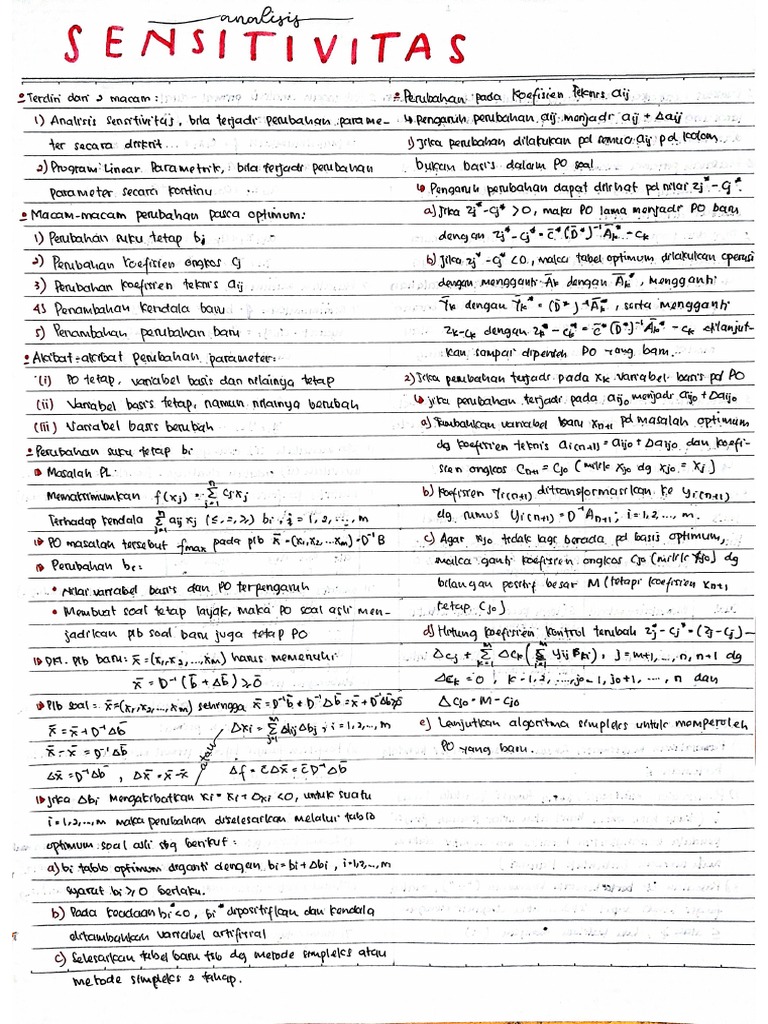 analisis
SENSITIVITAS
• Terdiri dari 2 macam:
1) Analisis Sensitivitas, bila terjadi perubahan parame-
ter secara diskrit
2) Program Linear Parametrik, bila terjadi perubahan
parameter secara kontinu
• Macam-macam perubahan pasca optimum:
1) Perubahan suku tetap bj
2) Perubahan koefisien ongkos Cj
3) Perubahan koefisien teknis aij
4) Penambahan kendala baru
5) Penambahan perubahan baru
• Akibat-akibat perubahan parameter:
(i) PO tetap, variabel basis dan nilainya tetap
(ii) Variabel basis tetap, namun nilainya berubah
(iii) Variabel basis berubah
• Perubahan suku tetap bi
Masalah PL:
Memaksimumkan f(xj) = Σ(j=1..n) cj xj
Terhadap kendala Σ(j=1..n) aij xj (≤, =, ≥) bi, i = 1, 2, ..., m
PO masalah tersebut fmax pada plb x̄ = (x1, x2, ... xm) = D⁻¹ B
Perubahan bi:
• Nilai variabel basis dan PO terpengaruh
• Membuat soal tetap layak, maka PO soal asli men-
jadikan plb soal baru juga tetap PO
DKL plb baru: x̄ = (x1, x2, ..., xm) harus memenuhi:
x̄ = D⁻¹ (b̄ + Δb̄) ≥ 0̄
Plb soal = x̄ = (x1, x2, ..., xm) sehingga x̄ = D⁻¹b̄ + D⁻¹Δb̄ = x̄ + D⁻¹Δb̄ ≥ 0
x̄ = x̄ + D⁻¹Δb̄
x̄ - x̄ = D⁻¹Δb̄
Δx̄ = D⁻¹Δb̄, Δx̄ = x̄ - x̄
atau
Δxi = Σ(j=1..m) Δij Δbj, i = 1, 2, ..., m
Δf = c̄Δx̄ = c̄ D⁻¹ Δb̄
Jika Δbi mengakibatkan xi = xi + Δxi < 0, untuk suatu
i = 1, 2, ..., m maka perubahan diselesaikan melalui tablo
optimum soal asli sbg berikut:
a) bi tablo optimum diganti dengan bi = bi + Δbi, i = 1, 2, ..., m
syarat bi ≥ 0 berlaku.
b) Pada keadaan bi* < 0, bi* dipositifkan dan kendala
ditambahkan variabel artifisial
c) Selesaikan tabel baru tsb dg metode simpleks atau
metode simpleks 2 tahap.
• Perubahan pada koefisien Teknis aij
↳ pengaruh perubahan aij menjadi aij + Δaij
1) Jika perubahan dilakukan pd semua aij pd kolom
bukan basis dalam PO soal
↳ Pengaruh perubahan dapat dilihat pd nilai zj* - cj*.
a) Jika zj* - cj* > 0, maka PO lama menjadi PO baru
dengan zj* - cj* = c̄* (D*)⁻¹ Āk* - ck
b) Jika zj* - cj* < 0, maka tabel optimum dilakukan operasi
dengan mengganti Āk dengan Āk*, mengganti
Ȳk dengan Ȳk* = (D*)⁻¹ Āk*, serta mengganti
zk - ck dengan zk* - ck* = c̄* (D*)⁻¹ Āk* - ck dilanjut-
kan sampai diperoleh PO yang baru.
2) Jika perubahan terjadi pada xk variabel basis pd PO
↳ Jika perubahan terjadi pada aijo menjadi aijo + Δaijo
a) Tambahkan variabel baru xn+1 pd masalah optimum
dg koefisien teknis ai(n+1) = aijo + Δaijo dan koefi-
sien ongkos Cn+1 = Cjo (milik xjo dg xjo = xj)
b) Koefisien Yi(n+1) ditransformasikan ke yi(n+1)
dg rumus yi(n+1) = D⁻¹ An+1; i = 1, 2, ..., m.
c) Agar xjo tidak lagi berada pd basis optimum,
maka ganti koefisien ongkos Cjo (milik xjo) dg
bilangan positif besar M (tetapi koefisien xn+1
tetap Cjo)
d) Hitung koefisien kontrol terubah zj* - cj* = (zj - cj) -
Δcj + Σ(k=1..m) Δck (Σ(i=1..m) yij Bki), j = m+1, ..., n, n+1 dg
Δck = 0, k = 1, 2, ..., jo-1, jo+1, ..., n dan
ΔCjo = M - Cjo
e) Lanjutkan algoritma simpleks untuk memperoleh
PO yang baru.